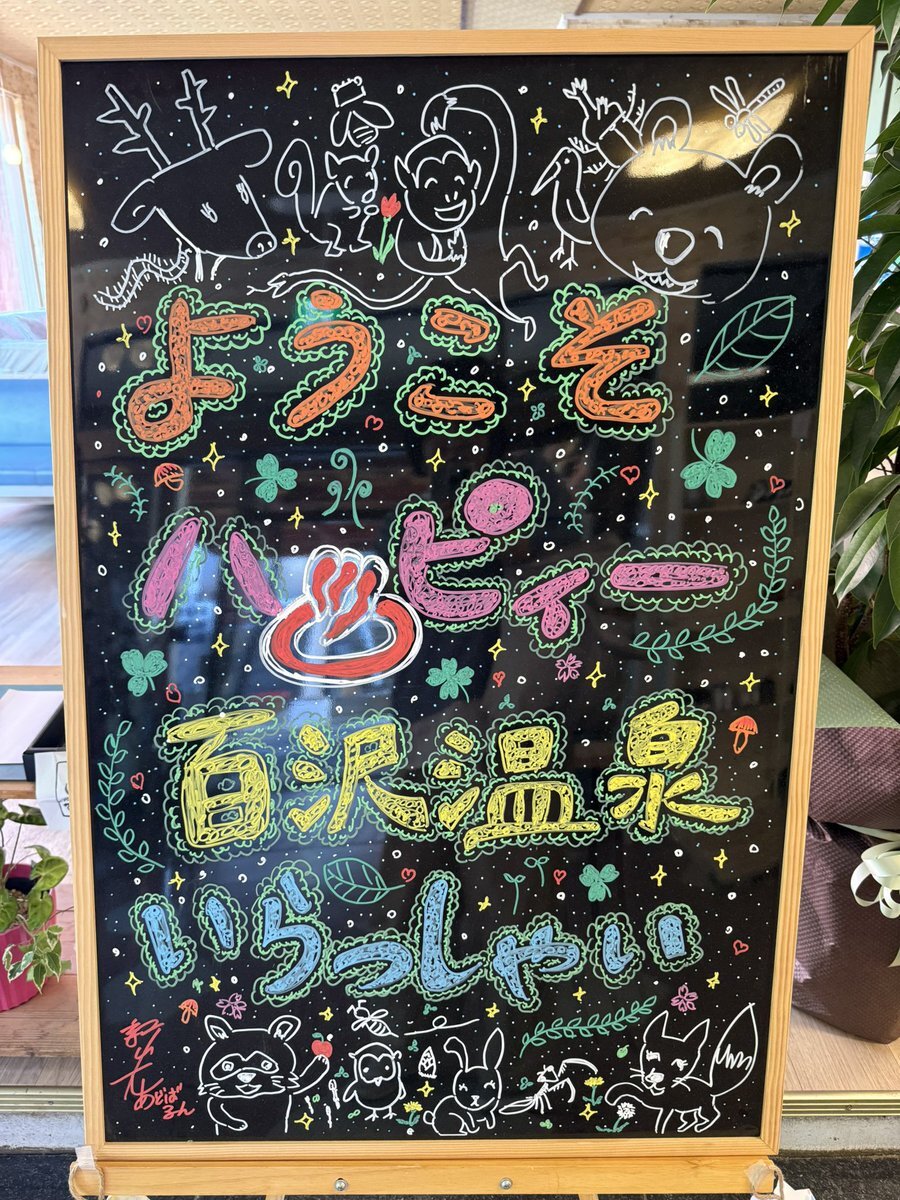 ようこそ
ハ♨ピィー
百沢温泉
いらっしゃい
あどばるーん